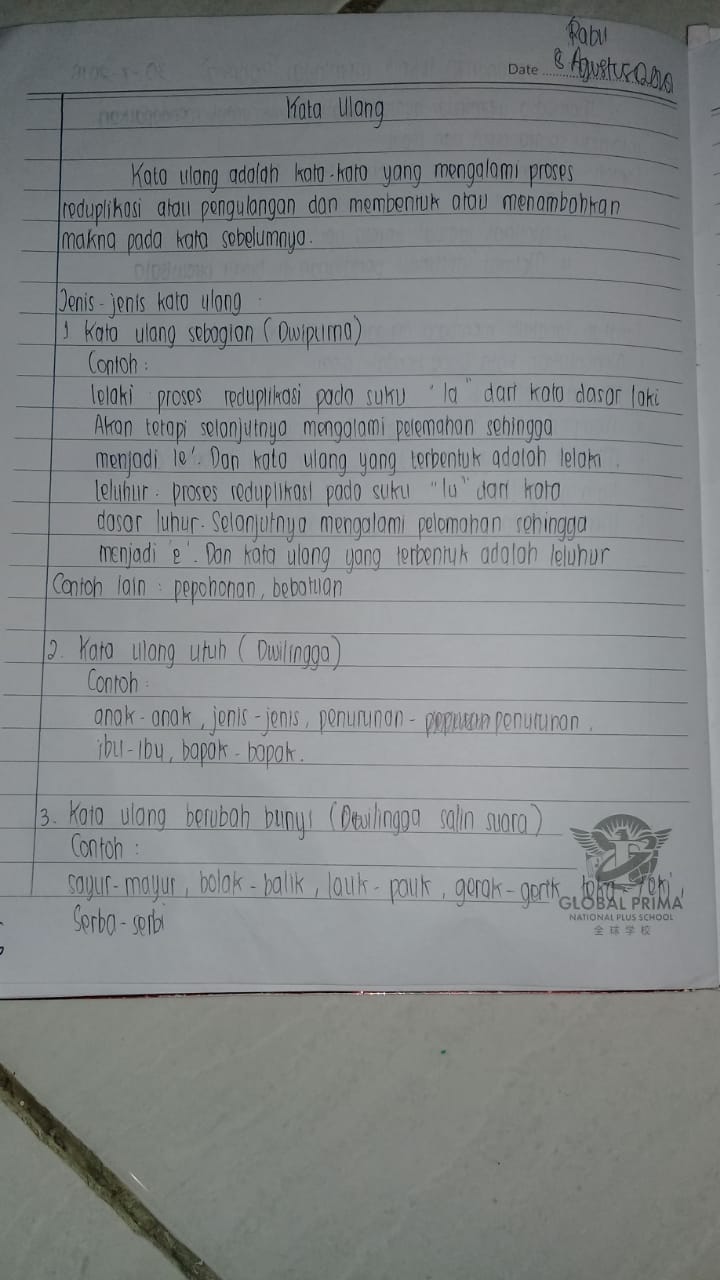 Rabu
Date 8 Agustus 2018
Kata Ulang
Kata ulang adalah kata-kata yang mengalami proses
reduplikasi atau pengulangan dan membentuk atau menambahkan
makna pada kata sebelumnya.
Jenis-jenis kata ulang :
1 Kata ulang sebagian (Dwipurna)
Contoh :
lelaki proses reduplikasi pada suku "la" dari kata dasar laki
Akan tetapi selanjutnya mengalami pelemahan sehingga
menjadi le'. Dan kata ulang yang terbentuk adalah lelaki.
leluhur. proses reduplikasi pada suku "lu" dari kata
dasar luhur. Selanjutnya mengalami pelemahan sehingga
menjadi 'e'. Dan kata ulang yang terbentuk adalah leluhur
Contoh lain : pepohonan, bebatuan
2. Kata ulang utuh (Dwilingga)
Contoh :
anak-anak, jenis-jenis, penurunan- penurunan.
ibu-ibu, bapak-bapak.
3. Kata ulang berubah bunyi (Dwilingga salin suara)
Contoh :
sayur-mayur, bolak-balik, lauk-pauk, gerak-gerik,
Serba-serbi
GLOBAL PRIMA
NATIONAL PLUS SCHOOL
全球学校